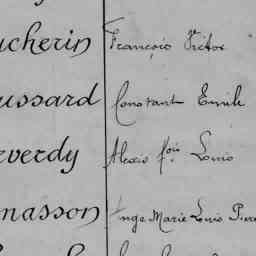 ucherin François Victor
ussard Constant Emile
verdy Alexis fois Louis
nasson Ange Marie Louis Pierre